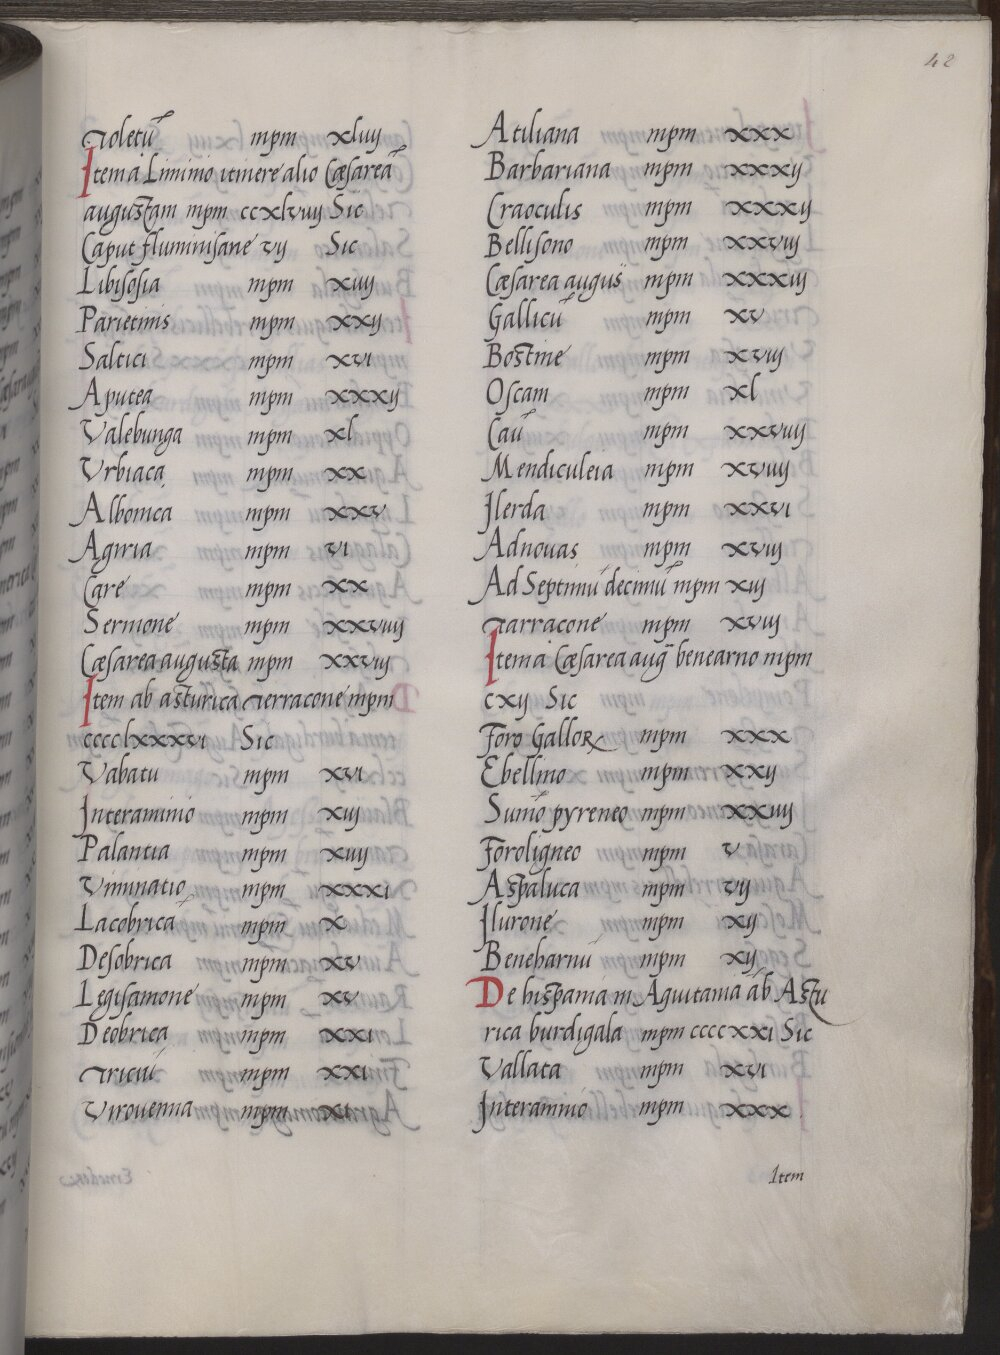 42
Toletū mpm xluij
Item a Liminio itinere alio Cæsareā
augustam mpm ccxlviiij Sic
Caput fluminis anę vij Sic
Libisosia mpm xiiij
Parietinis mpm xxij
Saltici mpm xvi
Aputea mpm xxxij
Valebunga mpm xl
Vrbiaca mpm xx
Albonica mpm xxv
Agiria mpm vi
Carę mpm xx
Sermonę mpm xxviiij
Cæsarea augusta mpm xxviij
Item ab asturica terracone mpm
cccclxxxvi Sic
Vabatu mpm xvi
Interaminio mpm xiij
Palantia mpm xiiij
Viminatio mpm xxxi
Lacobrica mpm x
Desobrica mpm xv
Legisamone mpm xv
Deobrica mpm xxi
Tricui mpm xxi
Virouenna mpm xi
Atiliana mpm xxx
Barbariana mpm xxxij
Craoculis mpm xxxij
Bellisono mpm xxviij
Cæsarea augus mpm xxxiij
Gallicū mpm xv
Bostine mpm xviij
Oscam mpm xl
Caū mpm xxviiij
Mendiculeia mpm xviiij
Ilerda mpm xxvi
Adnouas mpm xviij
Ad Septimū decimū mpm xiij
Tarracone mpm xviij
Item a Cæsarea aug benearno mpm
cxij Sic
Foro Galloꝝ mpm xxx
Ebellino mpm xxij
Sumō pyreneo mpm xxiiij
Foroligneo mpm v
Aspaluca mpm vij
Ilurone mpm xij
Benebarnū mpm xij
De hispania in Aquitania ab Astu
rica burdigala mpm ccccxxi Sic
Vallata mpm xvi
Interamnio mpm xxx
Item